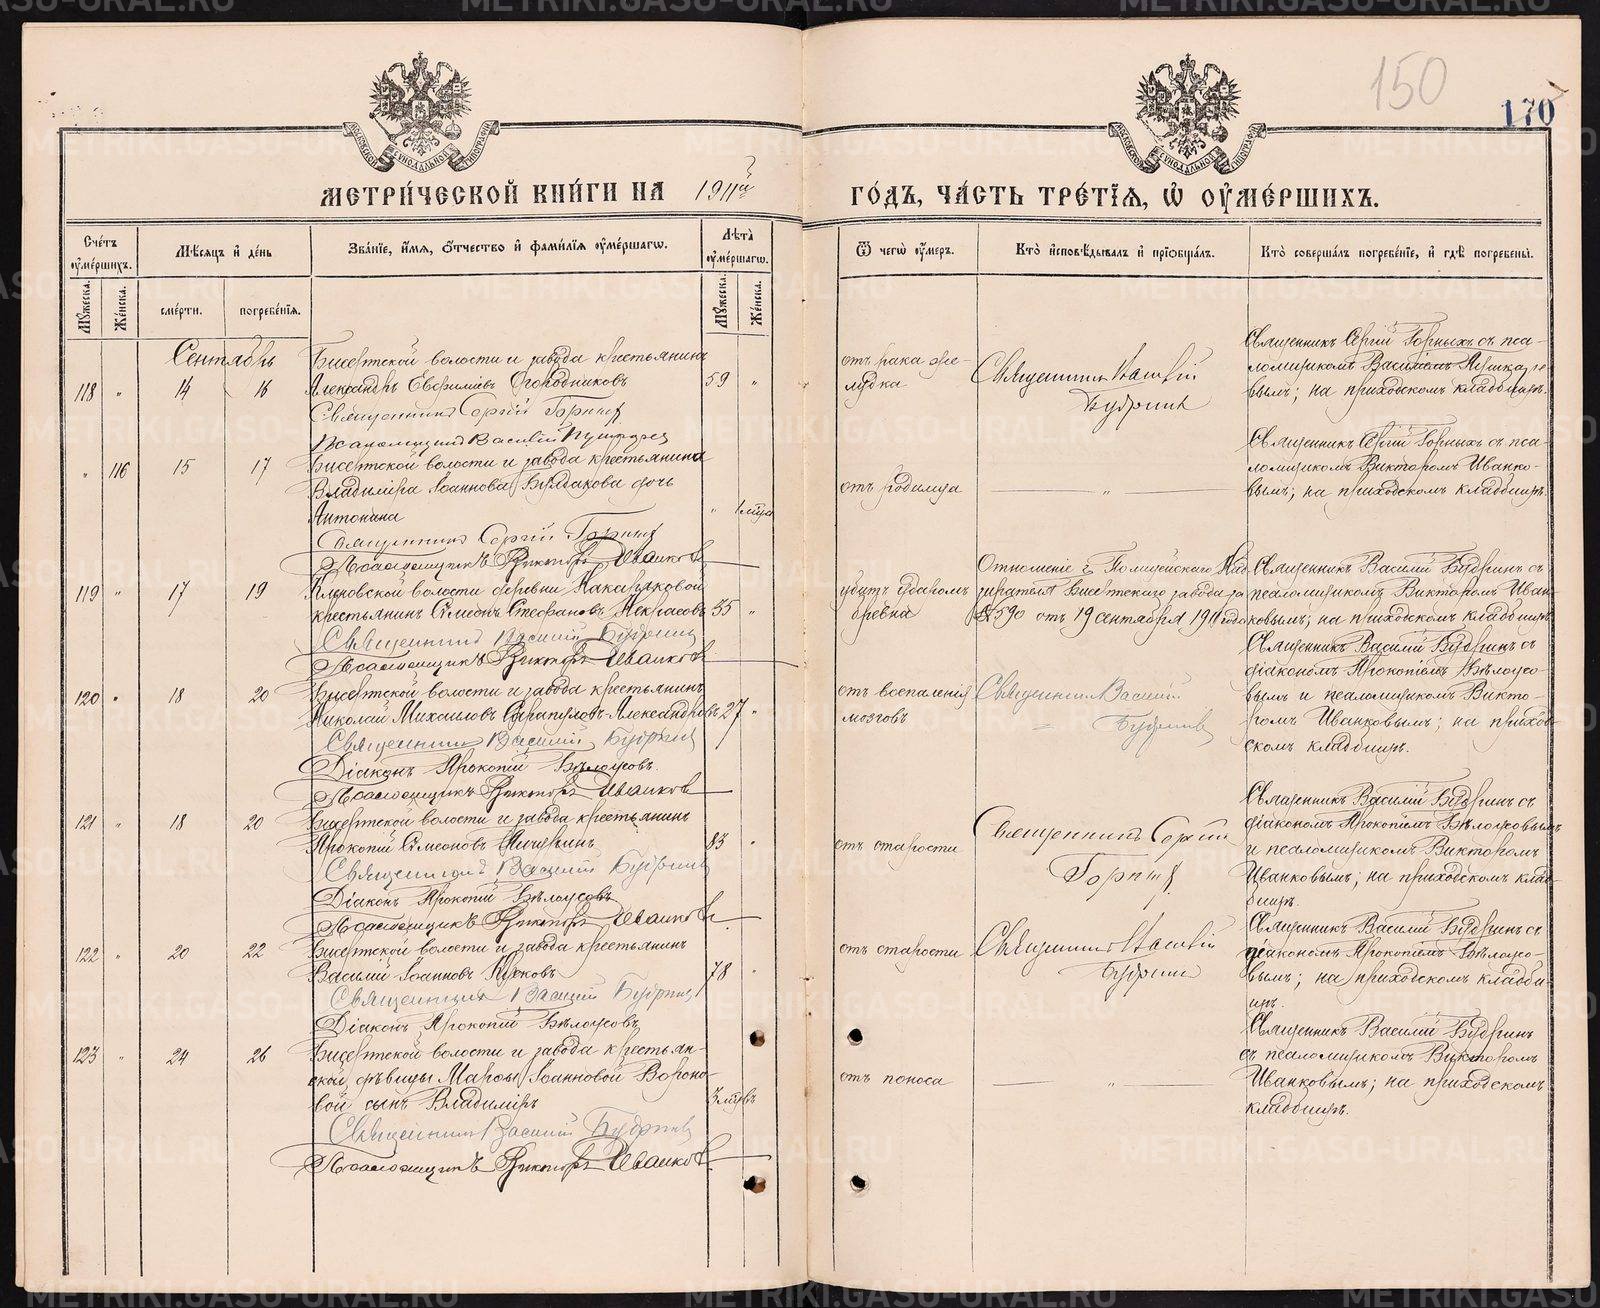 150
170
МЕТРИ́ЧЕСКОЙ КНИ́ГИ НА 1911й
ГО́ДЪ, ЧА́СТЬ ТРЕ́ТІЯ, Ѡ ОУМЕ́РШИХЪ.
Сче́тъ оуме́ршихъ.
Мѣсяцъ и де́нь
Зва́ніе, и́мя, о́тчество и фами́лія оуме́ршагѡ.
Лѣта̀ оуме́ршагѡ.
Ѿ чегѡ̀ оу́меръ.
Кто̀ исповѣ́дывалъ и пріобща́лъ.
Кто̀ соверша́лъ погребе́ніе, и гдѣ̀ погребены̀.
Му́жеска.
Же́нска.
сме́рти.
погребе́нія.
Му́жеска.
Же́нска.
Сентябрь
118 " 14 16
Бисертской волости и завода крестьянинъ
Александръ Евфиміевъ Огородниковъ 59 "
Священникъ Сергій Горныхъ
Псаломщикъ Василій
отъ рака же-
лудка
Священникъ Василій
Будринъ
Священникъ Сергій Горныхъ съ пса-
ломщикомъ Василіемъ
вымъ; на приходскомъ кладбищѣ.
" 116 15 17
Бисертской волости и завода крестьянина
Владиміра Іоаннова Булдакова дочь
Антонина " 1 мѣсяц
Священникъ Сергій Горныхъ
Псаломщикъ Викторъ Иванковъ
отъ родимца
"
Священникъ Сергій Горныхъ съ пса-
ломщикомъ Викторомъ Иванко-
вымъ; на приходскомъ кладбищѣ.
119 " 17 19
Кленовской волости деревни Накаряковой
крестьянинъ Симеонъ Стефановъ Некрасовъ 35 "
Священникъ Василій Будринъ
Псаломщикъ Викторъ Иванковъ
убитъ ударомъ
бревна
Отношеніе г. Полицейскаго Над-
зирателя Бисертскаго завода за
№ 590 отъ 19 сентября 1911 года
Священникъ Василій Будринъ съ
псаломщикомъ Викторомъ Иван-
ковымъ; на приходскомъ кладбищѣ
120 " 18 20
Бисертской волости и завода крестьянинъ
Николай Михаиловъ Александровъ 27 "
Священникъ Василій Будринъ
Діаконъ Прокопій Бѣлоусовъ.
Псаломщикъ Викторъ Иванковъ
отъ воспаленія
мозговъ
Священникъ Василій
Будринъ
Священникъ Василій Будринъ съ
діакономъ Прокопіемъ Бѣлоусо-
вымъ и псаломщикомъ Викто-
ромъ Иванковымъ; на приход-
скомъ кладбищѣ.
121 " 18 20
Бисертской волости и завода крестьянинъ
Прокопій Симеоновъ 83 "
Священникъ Василій Будринъ
Діаконъ Прокопій Бѣлоусовъ
Псаломщикъ Викторъ Иванковъ
отъ старости
Священникъ Сергій
Горныхъ
Священникъ Василій Будринъ съ
діакономъ Прокопіемъ Бѣлоусовымъ
и псаломщикомъ Викторомъ
Иванковымъ; на приходскомъ клад-
бищѣ.
122 " 20 22
Бисертской волости и завода крестьянинъ
Василій Іоанновъ 78 "
Священникъ Василій Будринъ
Діаконъ Прокопій Бѣлоусовъ
отъ старости
Священникъ Василій
Будринъ
Священникъ Василій Будринъ съ
діакономъ Прокопіемъ Бѣлоусо-
вымъ; на приходскомъ кладби-
щѣ.
123 " 24 26
Бисертской волости и завода крестьян-
ской дѣвицы Марѳы Іоанновой Вороно-
вой сынъ Владиміръ 3 мѣсяц
Священникъ Василій Будринъ
Псаломщикъ Викторъ Иванковъ
отъ поноса
"
Священникъ Василій Будринъ
съ псаломщикомъ Викторомъ
Иванковымъ; на приходскомъ
кладбищѣ.
METRIKI.GASO-URAL.RU